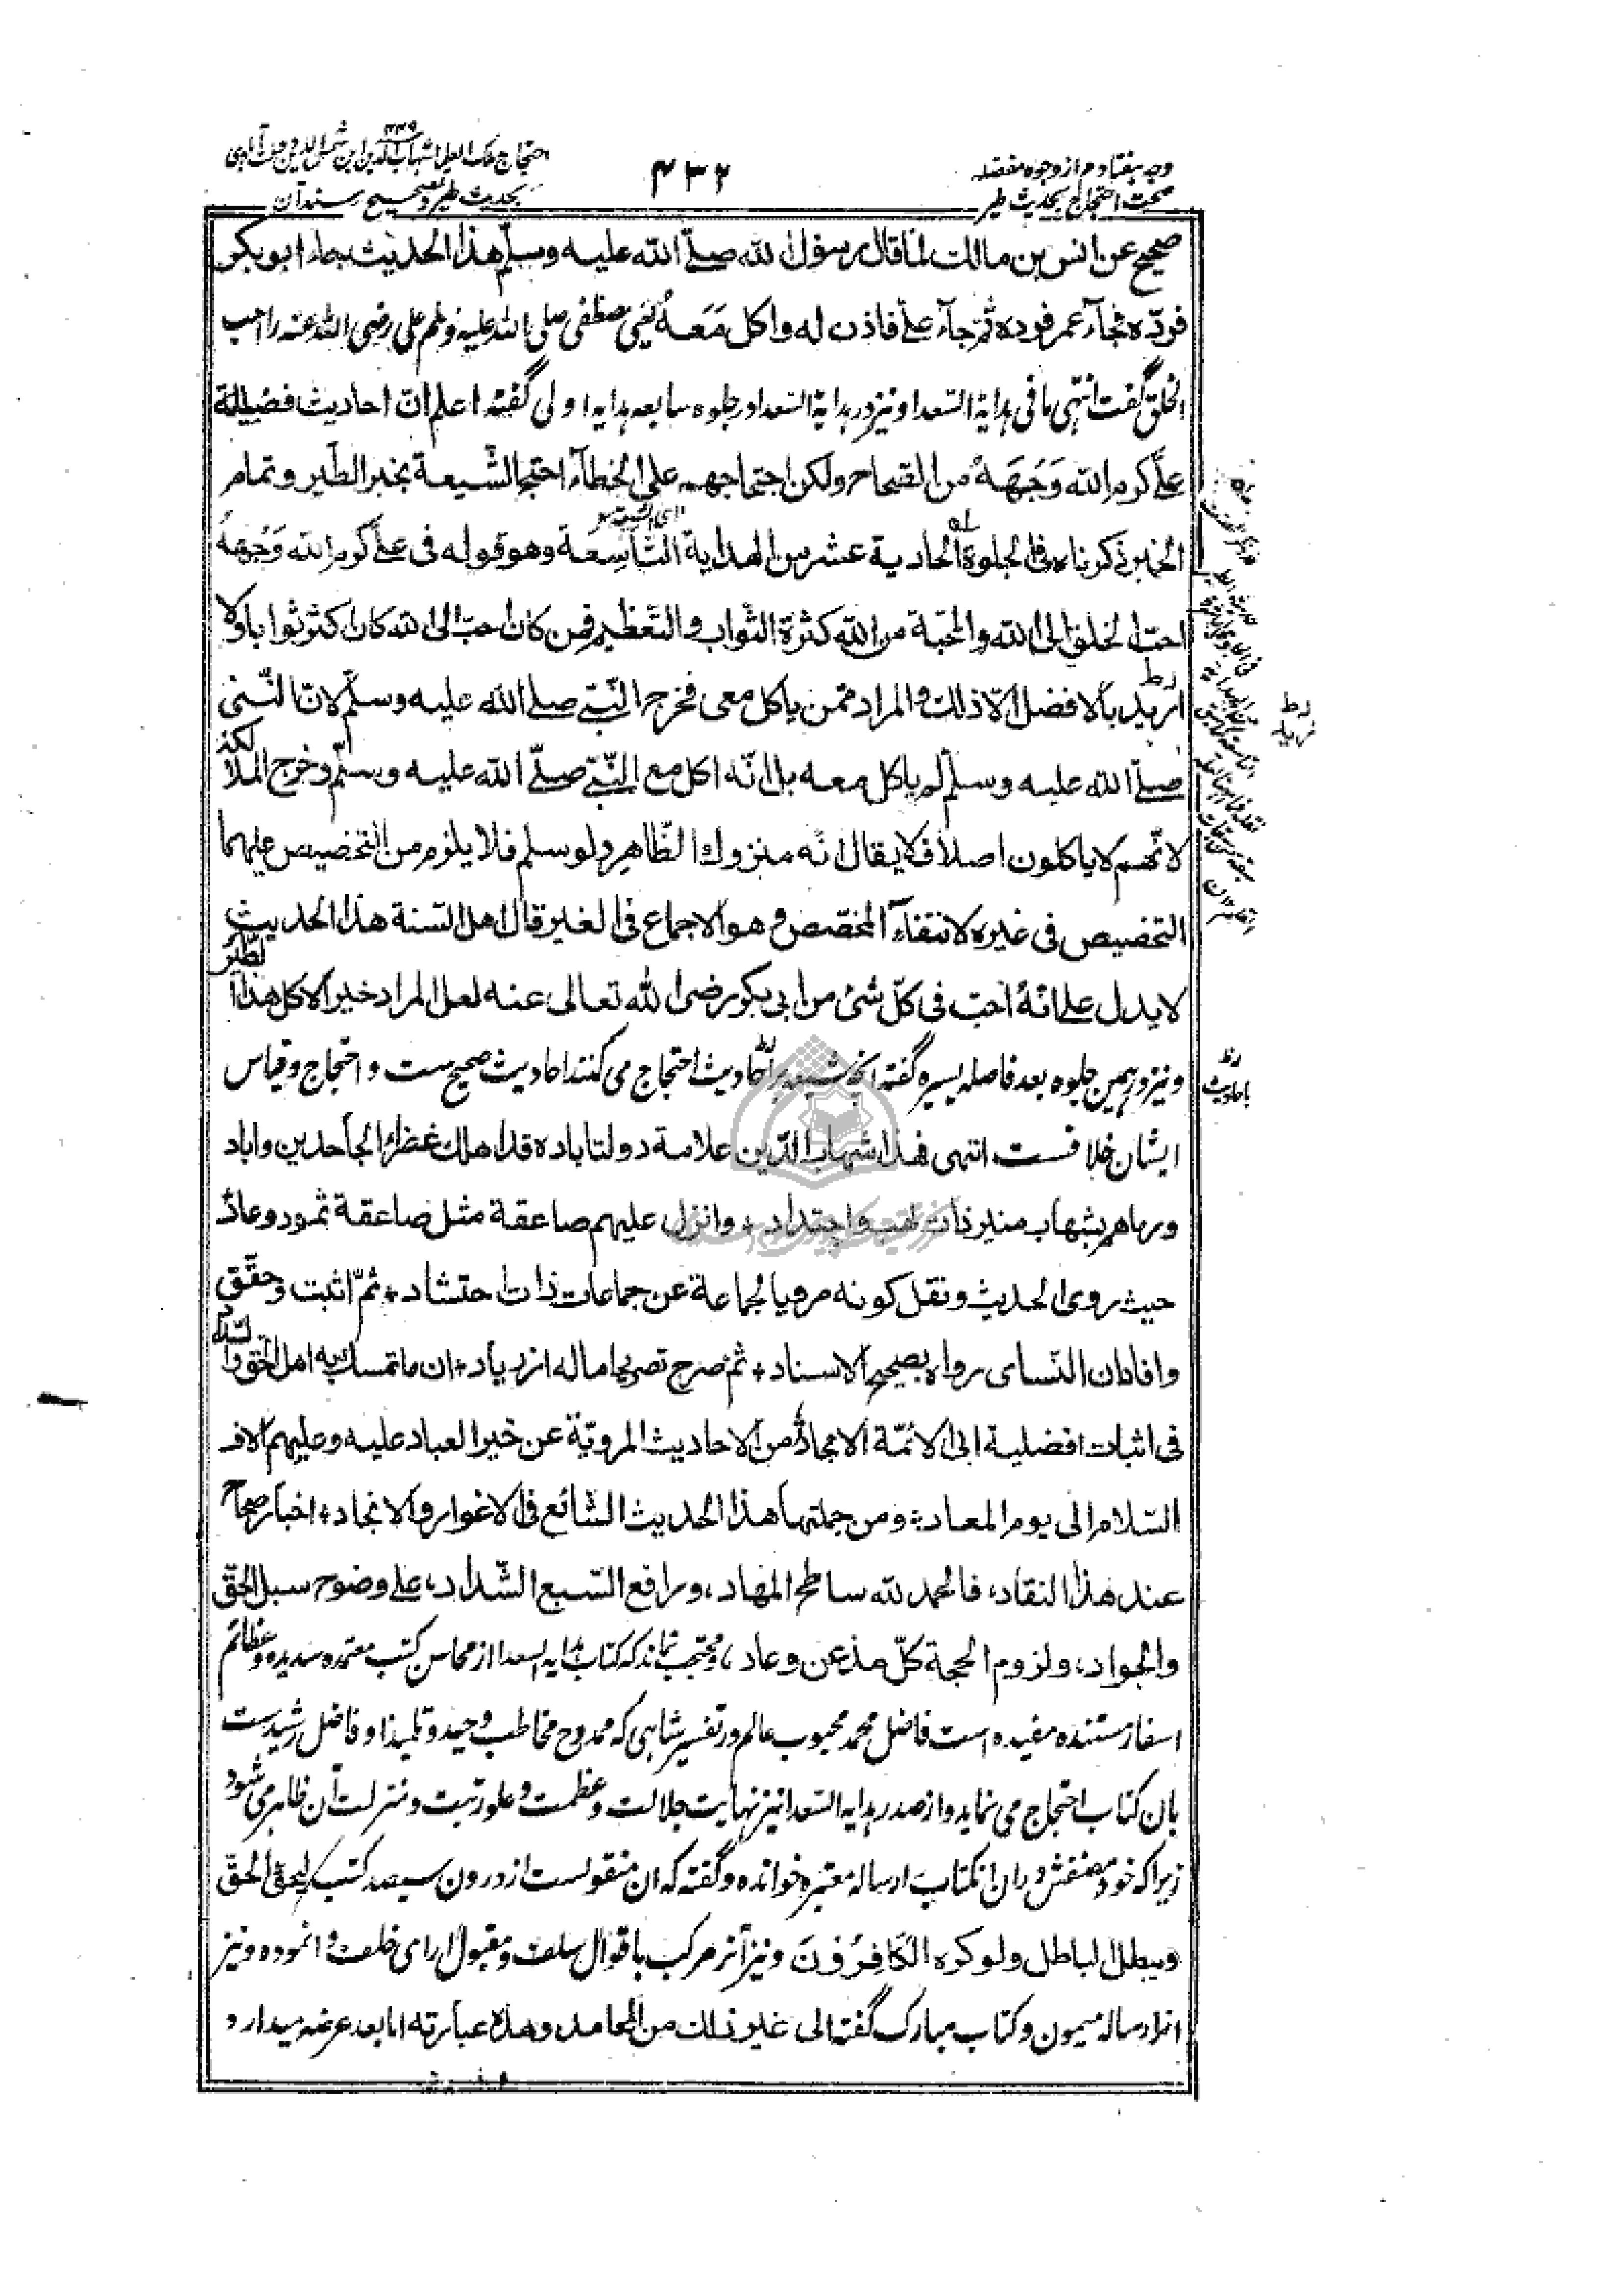 وجه هفتاد و م از وجوه مفصله
صحت احتجاج بحدیث طیر
۴۳۲
احتجاج ملک العلما شهاب الدین ابن شمس الدین دولت آبادی
بحدیث طیر و تصحیح سند آن
صحیح عن انس بن مالك لما قال رسول الله صلّے الله علیه وسلّم هذا الحدیث جاء ابو بکر
فردّه ثم جآء عمر فرده ثمّ جآء علے فاذن له واکل مَعَهُ یعنی مصطفی صلی الله علیه وسلم علی رضی الله عنه را احب
الخلق گفت انتهی ما فی هدایة السّعدا و نیز در هدایة السّعدا در جلوه سابعه هدایه اولی گفته اعلم انّ احادیث فضیلة
علےّ کرم الله وَجهَهُ من الصّحاح ولکن احتجاجهم علی الخطآء احتجّ الشّیعة بخبر الطّیر و تمام
الخبر ذکرناه فی الجلوة الحادیة عشر من الهدایة التّاسِعَة وهو قوله فی علےّ کرم الله وَجْهَهُ
احبّ الخلق الی الله والمحبّة من الله کثرة الثّواب والتّعظیم فمن کان احبّ الی الله کان اکثر ثوابا ولا
ارید بالافضل الّا ذلك والمراد ممّن یاکل معی فخرج النّبیّ صلے الله علیه وسلّم لانّ النّبی
صلّے الله علیه وسلّم لم یاکل معه بل انّه اکل مع النّبیّ صلّے الله علیه وسلّم وخرج الملائکة
لانّهم لا یاکلون اصلاً فلا یقال انّه متروك الظّاهر ولو سلم فلا یلزم من التخصیص علیهما
التخصیص فی غیره لانتفآء المخصّص وهو الاجماع فی الغیر قال اهل السّنة هذا الحدیث
لا یدل علے انّهُ احبّ فی کلّ شئ من ابی بکر رضی الله تعالی عنه لعل المراد خیر الاکل هذا الطّیر
و نیز در همین جلوه بعد فاصله یسیره گفته انچه شیعه بر احادیث احتجاج می کنند احادیث صحیح ست و احتجاج و قیاس
باحادیث
ایشان خلافست انتهی فهذا شهاب الدّین علامة دولتاباده قد اهلك غفراء الجاحدین واباد
ورماهم بشهاب منیر ذات لهب واحتداد، وانزل علیهم صاعقة مثل صاعقة ثمود وعاد
حیث روی الحدیث ونقل کونه مرویا لجماعة عن جماعات ذات احتشاد، ثمّ اثبت وحقّق
وافاد ان النّسای رواه بصحیح الاسناد، ثمّ صرح تصریحا ماله ازدیاد، ان ما تمسك به اهل الحق والسّداد
فی اثبات افضلیة ابی الائمّة الامجاد من الاحادیث المرویّة عن خیر العباد علیه وعلیهم الاف
السّلام الی یوم المعاد، ومن جملتها هذا الحدیث الشّائع فی الاغوار والانجاد، اخبار صحاح
عند هذا النقاد، فالحمد لله ساطح المهاد، ورافع السّبع الشّداد، علے وضوح سبیل الحقّ
والجواد، ولزوم الحجة کلّ مذعن وعاد، و محتجب نماند که کتاب هدایه السعدا از محاسن کتب معتمده سدیده و عظائم
اسفار مستنده مفیده است فاضل محمد محبوب عالم در تفسیر شاهی که ممدوح مخاطب وحید و تلمیذ او فاضل رشید ست
بان کتاب احتجاج می نماید و از صدر هدایه السّعدا نیز نهایت جلالت و عظمت و علو رتبت و منزلت آن ظاهر می شود
زیرا که خود مصنفش دران انکتاب را رساله معتبره خوانده و گفته که ان منقولست از درون سیصد کتب لیحق الحقّ
ویبطل الباطل ولو کره الکَافِرُونَ و نیز آنرا مرکب باقوال سلف و مقبول ارای خلف وانموده و نیز
انرا رساله میمون و کتاب مبارک گفته الی غیر ذلك من المحامد وهذه عبارته اما بعد عرضه میدارد